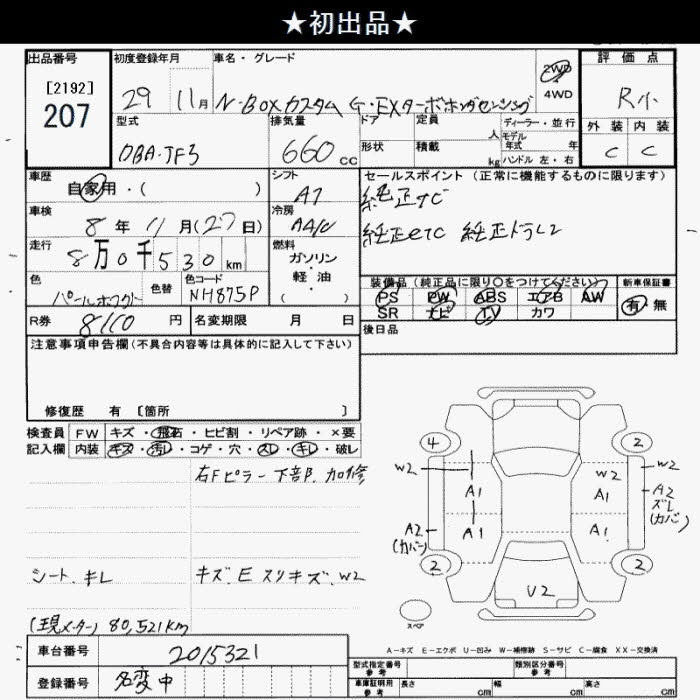 ★初出品★
出品番号
[2192]
207
初度登録年月
29 11月
車名・グレード
N-BOXカスタム G・EXターボホンダセンシング
2WD
4WD
評価点
R小
外装 内装
C C
型式
DBA-JF3
排気量
660 cc
ドア
形状
定員 人
積載 kg
ディーラー・並行
モデル
年式 年
ハンドル 左・右
車歴
自家用・( )
シフト
A7
セールスポイント (正常に機能するものに限ります)
純正ナビ
純正etc 純正ドラレコ
車検
8年11月(27日)
冷房
AA/C
走行
8万0千530km
燃料
ガソリン・軽油・( )
色
パールホワイト
色替
色コード
NH875P
装備品 (純正品に限り〇をつけてください)
PS PW ABS エアB AW
SR ナビ TV カワ
新車保証書
有 無
R券 8110 円
名変期限 月 日
後日品
注意事項申告欄(不具合内容等は具体的に記入して下さい)
修復歴 有 [箇所 ]
検査員
記入欄
FW キズ・飛石・ヒビ割・リペア跡・×要
内装 キズ・汚レ・コゲ・穴・スレ・キレ・破レ
右Fピラー下部 加修
シート、キレ
キズ、E スリキズ、W2
(現メーター) 80,521km
4 2
W2 W2 W2
A1 A1 A2
ズレ
(カバー)
A2
(カバー)
A1 A1
2 2
U2
スペア
A-キズ E-エクボ U-凹み W-補修跡 S-サビ C-腐食 XX-交換済
車台番号 2015321
登録番号 名変中
型式指定番号
参考
類別区分番号
参考
車庫証明用
参考
長さ cm 幅 cm 高さ cm